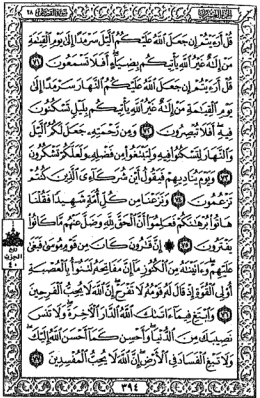 الجزء العشرون
سورة القصص ٢٨
قُلْ أَرَءَيْتُمْ إِن جَعَلَ ٱللَّهُ عَلَيْكُمُ ٱلَّيْلَ سَرْمَدًا إِلَىٰ يَوْمِ ٱلْقِيَٰمَةِ
مَنْ إِلَٰهٌ غَيْرُ ٱللَّهِ يَأْتِيكُم بِضِيَآءٍ ۖ أَفَلَا تَسْمَعُونَ ٧١
قُلْ أَرَءَيْتُمْ إِن جَعَلَ ٱللَّهُ عَلَيْكُمُ ٱلنَّهَارَ سَرْمَدًا إِلَىٰ
يَوْمِ ٱلْقِيَٰمَةِ مَنْ إِلَٰهٌ غَيْرُ ٱللَّهِ يَأْتِيكُم بِلَيْلٍ تَسْكُنُونَ
فِيهِ ۖ أَفَلَا تُبْصِرُونَ ٧٢ وَمِن رَّحْمَتِهِۦ جَعَلَ لَكُمُ ٱلَّيْلَ
وَٱلنَّهَارَ لِتَسْكُنُوا۟ فِيهِ وَلِتَبْتَغُوا۟ مِن فَضْلِهِۦ وَلَعَلَّكُمْ تَشْكُرُونَ
٧٣ وَيَوْمَ يُنَادِيهِمْ فَيَقُولُ أَيْنَ شُرَكَآءِىَ ٱلَّذِينَ كُنتُمْ
تَزْعُمُونَ ٧٤ وَنَزَعْنَا مِن كُلِّ أُمَّةٍ شَهِيدًا فَقُلْنَا
هَاتُوا۟ بُرْهَٰنَكُمْ فَعَلِمُوٓا۟ أَنَّ ٱلْحَقَّ لِلَّهِ وَضَلَّ عَنْهُم مَّا كَانُوا۟
يَفْتَرُونَ ٧٥ ۞ إِنَّ قَٰرُونَ كَانَ مِن قَوْمِ مُوسَىٰ فَبَغَىٰ
عَلَيْهِمْ ۖ وَءَاتَيْنَٰهُ مِنَ ٱلْكُنُوزِ مَآ إِنَّ مَفَاتِحَهُۥ لَتَنُوٓأُ بِٱلْعُصْبَةِ
أُو۟لِى ٱلْقُوَّةِ إِذْ قَالَ لَهُۥ قَوْمُهُۥ لَا تَفْرَحْ ۖ إِنَّ ٱللَّهَ لَا يُحِبُّ ٱلْفَرِحِينَ
٧٦ وَٱبْتَغِ فِيمَآ ءَاتَىٰكَ ٱللَّهُ ٱلدَّارَ ٱلْءَاخِرَةَ ۖ وَلَا تَنسَ
نَصِيبَكَ مِنَ ٱلدُّنْيَا ۖ وَأَحْسِن كَمَآ أَحْسَنَ ٱللَّهُ إِلَيْكَ ۖ
وَلَا تَبْغِ ٱلْفَسَادَ فِى ٱلْأَرْضِ ۖ إِنَّ ٱللَّهَ لَا يُحِبُّ ٱلْمُفْسِدِينَ ٧٧
ربع
الحزب
٤٠
٣٩٤